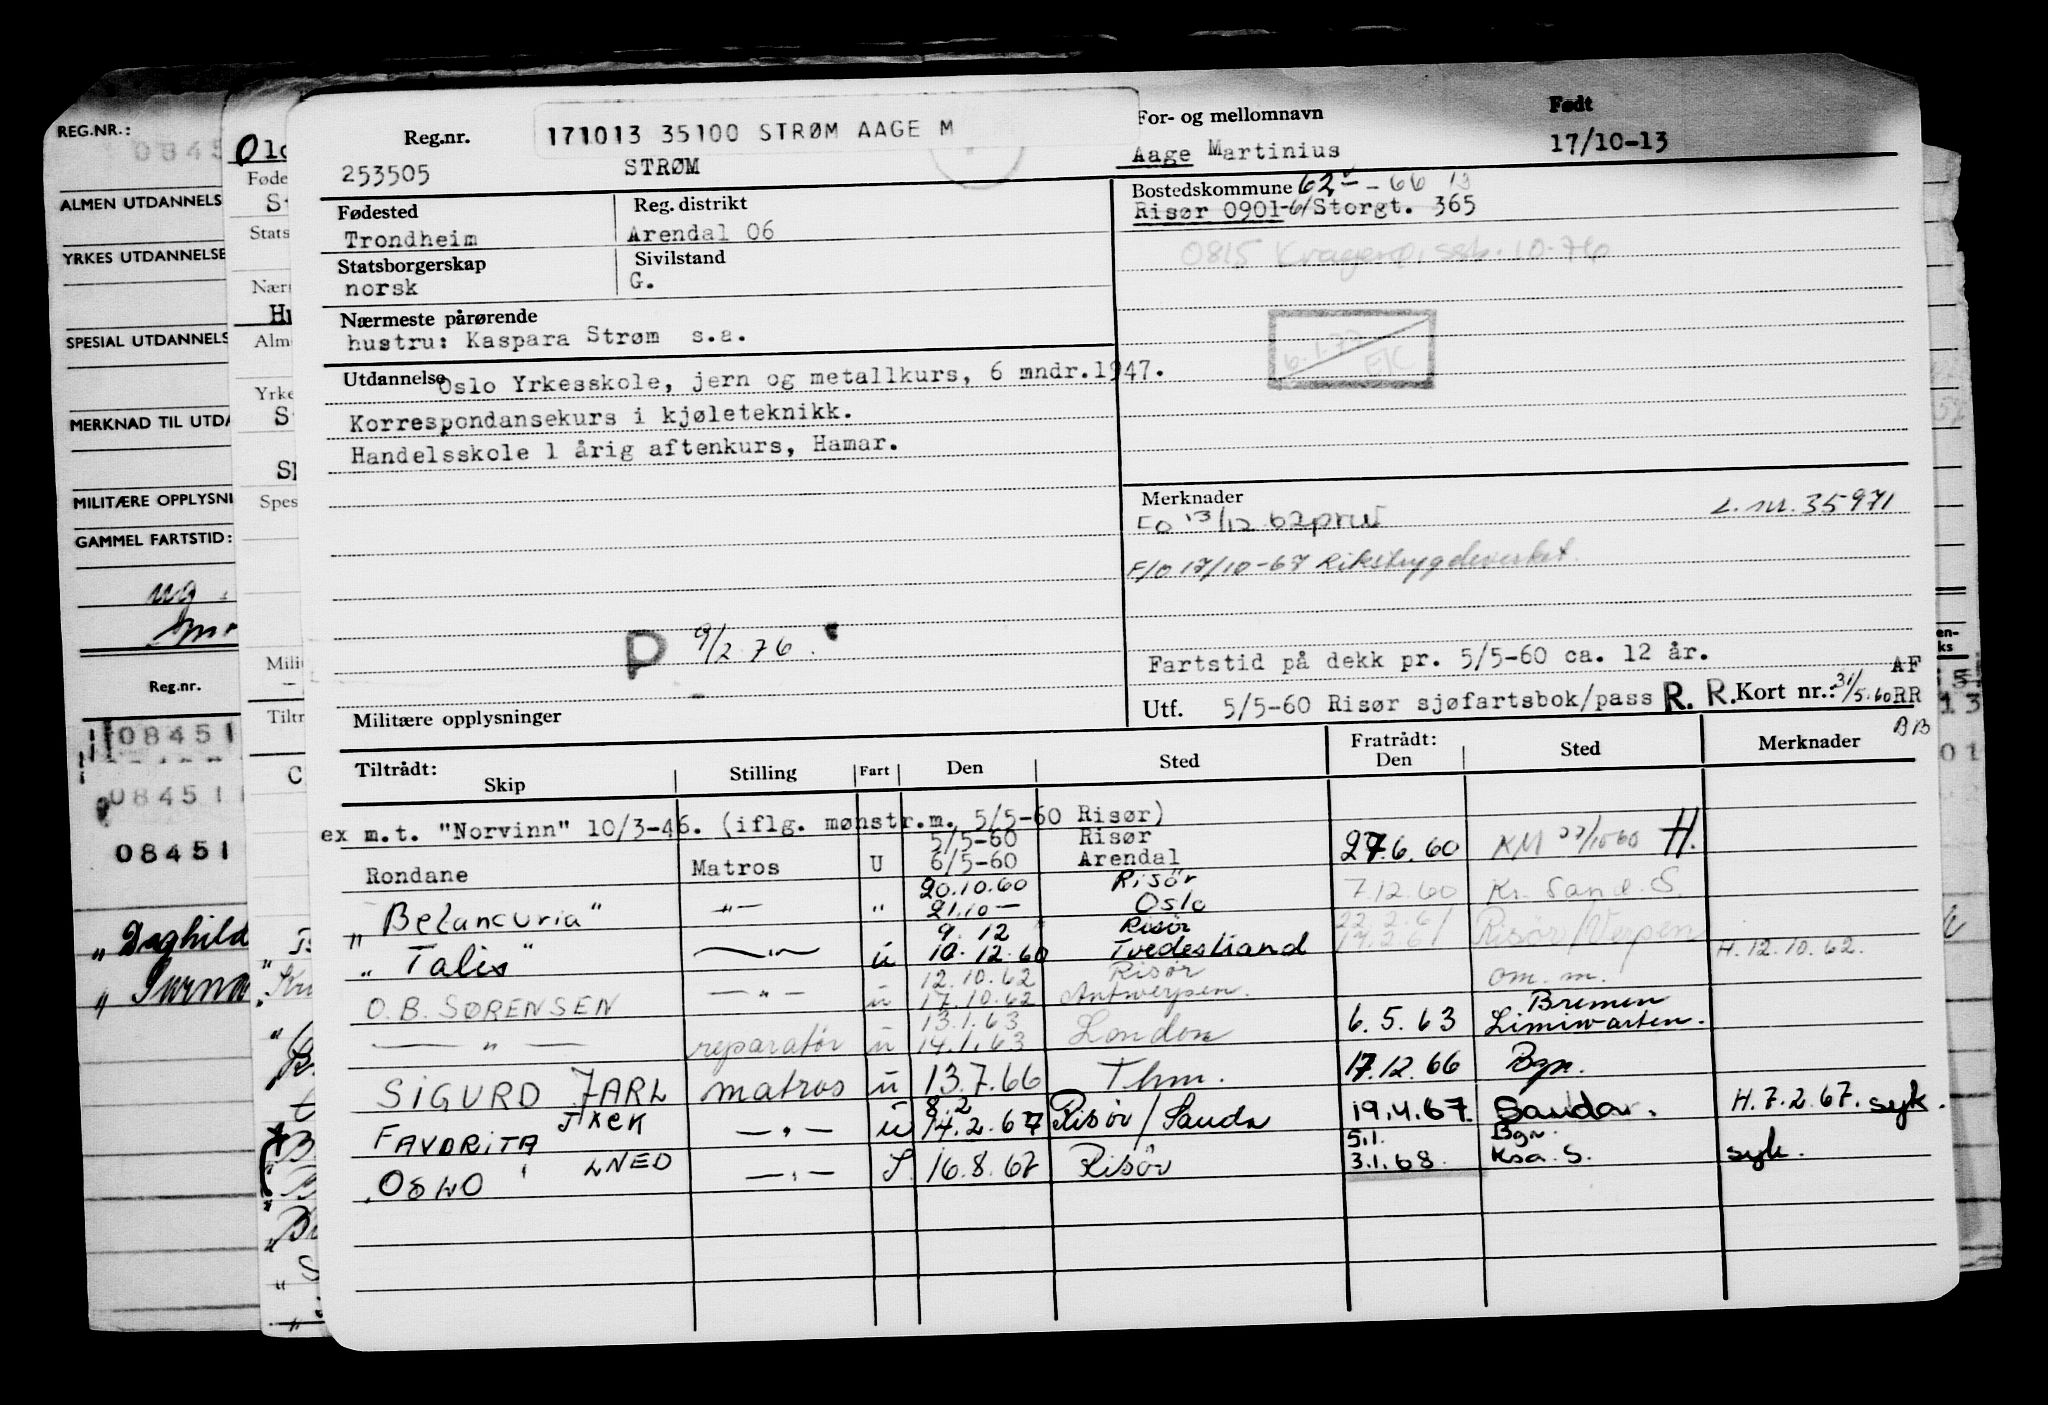 Reg.nr.
171013 35100 STRØM AAGE M
For- og mellomnavn
Født
253505
STRØM
Aage Martinius
17/10-13
Fødested
Reg. distrikt
Bostedskommune 62 - 66
Trondheim
Arendal 06
Risør 0901-61 Storgt. 365
Statsborgerskap
Sivilstand
0815 Kragerø, ssb. 10-76
norsk
G.
Nærmeste pårørende
hustru: Kaspara Strøm s.a.
6.1.77 E/C
Utdannelse Oslo Yrkesskole, jern og metallkurs, 6 mndr.1947.
Korrespondansekurs i kjøleteknikk.
Handelsskole 1 årig aftenkurs, Hamar.
Merknader
L. nr. 35971
Fo 13/12 62
F/O 17/10-67 Rikstrygdeverket.
P 9/2 76.
Fartstid på dekk pr. 5/5-60 ca. 12 år.
AF
Militære opplysninger
Utf. 5/5-60 Risør sjøfartsbok/pass R. R. Kort nr.: 31/5.60 RR
BB
Tiltrådt:
Skip
Stilling
Fart
Den
Sted
Fratrådt:
Den
Sted
Merknader
ex m.t. "Norvinn" 10/3-46. (iflg. mønstr.m. 5/5-60 Risør)
5/5-60 Risør
Rondane Matros U 6/5-60 Arendal 27.6.60 KM 27/10 60 H.
20.10.60 Risør
"Belancuria" -"- " 21.10- Oslo 7.12.60 Kr. Sand. S.
9.12 Risør 22.2.61
"Talis" -"- u 10.12.60 Tvedestrand 17.2.61 Risør/Verpen H.12.10.62.
12.10.62 Risør
O. B. SØRENSEN -"- u 17.10.62 Antwerpen. om. m.
13.1.63 Bremen
-"- reparatør u 14.1.63 London 6.5.63
SIGURD JARL matros u 13.7.66 Thm. 17.12.66 Bgn.
8.2
FAVORITA -"- u 14.2.67 Risør/Sauda 19.4.67. H.7.2.67. syk.
5.1. Bgn.
OSLO -"- 16.8.67 Risør 3.1.68. Ksa. S. syk.
REG.NR.:
0845
ALMEN UTDANNELS
YRKES UTDANNELSE
SPESIAL UTDANNELS
MERKNAD TIL UTDA
MILITÆRE OPPLYSNI
GAMMEL FARTSTID:
Reg.nr.
08451
08451
08451
"Daghild
Føde
Stats
Nær
Alm
Yrke
Spes
Milit
Tiltr